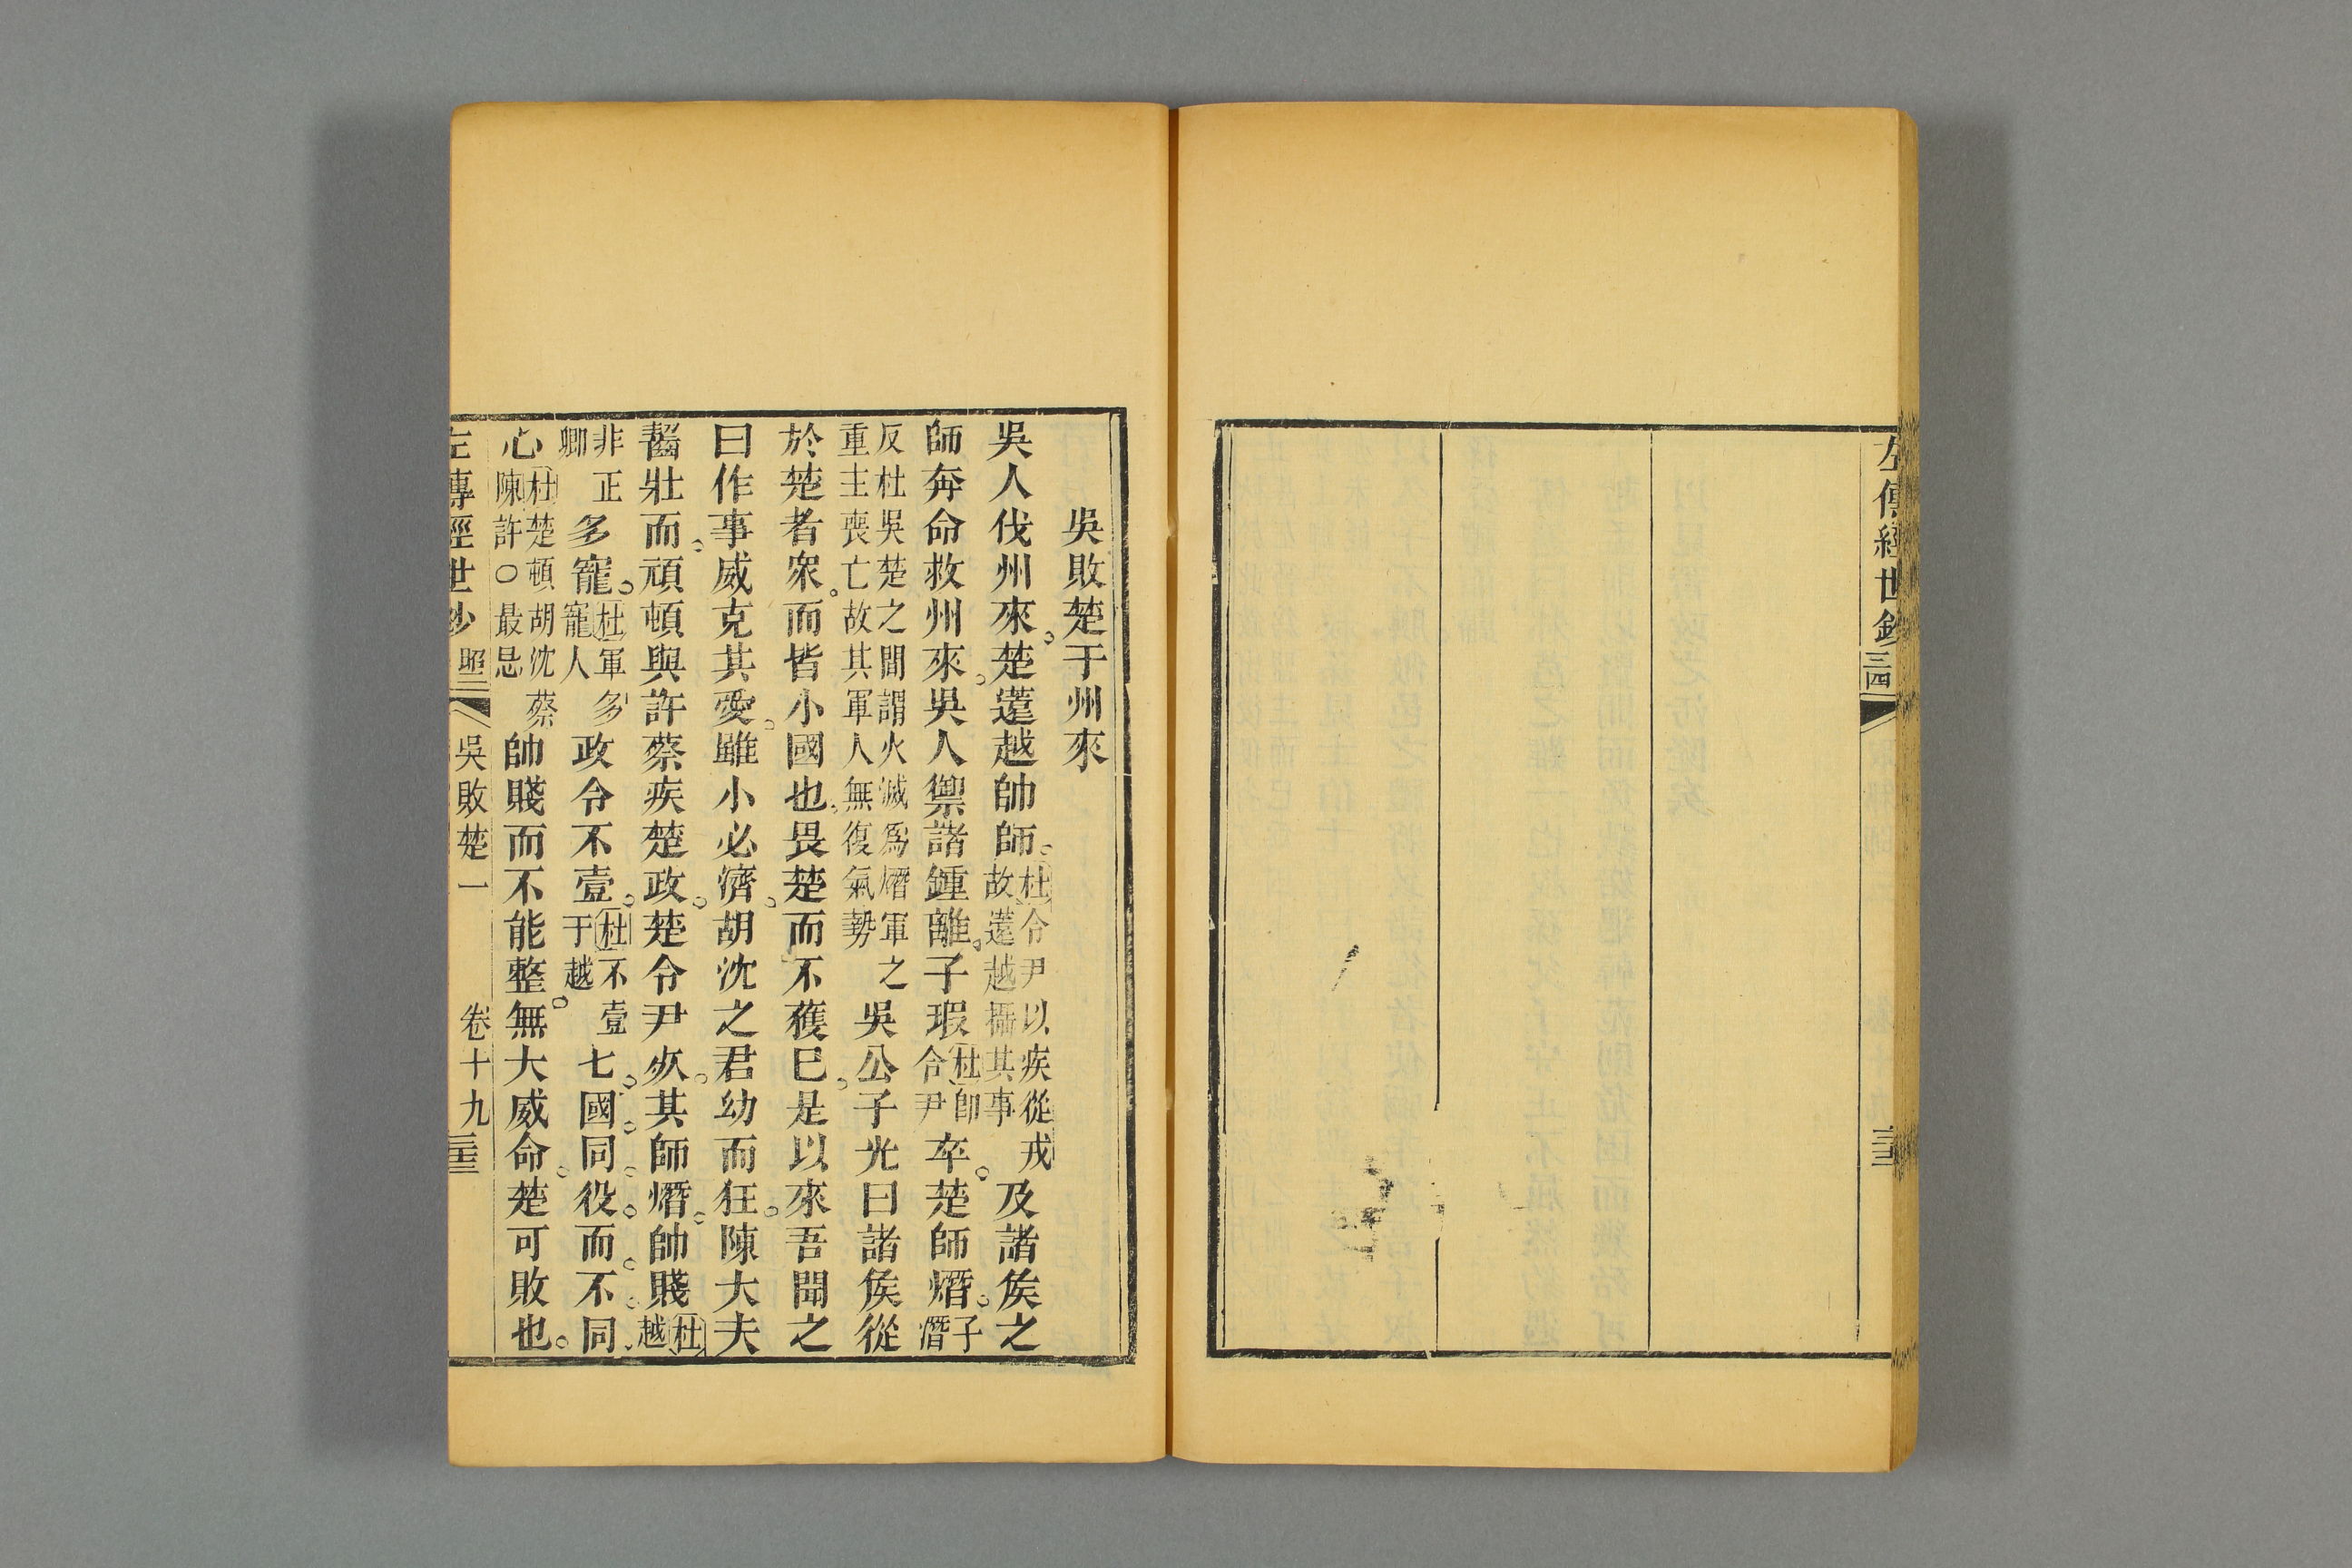 左傳經世鈔
吳敗楚于州來
吳人伐州來楚薳越帥師杜令尹以疾從戎故薳越攝其事及諸侯之
師奔命救州來吳人禦諸鍾離子瑕杜卽令尹卒楚師熸子熸
反杜吳楚之間謂火滅爲熸軍之重主喪亡故其軍人無復氣勢吳公子光曰諸侯從
於楚者衆而皆小國也畏楚而不獲巳是以來吾聞之
曰作事威克其愛雖小必濟胡沈之君幼而狂陳大夫
齧壯而頑頓與許蔡疾楚政楚令尹㱙其師熸帥賤杜越
非正卿多寵杜軍多寵人政令不壹杜不壹于越七國同役而不同
心杜楚頓胡沈蔡陳許〇最忌帥賤而不能整無大威命楚可敗也
左傳經世鈔 昭三 吳敗楚一 卷十九